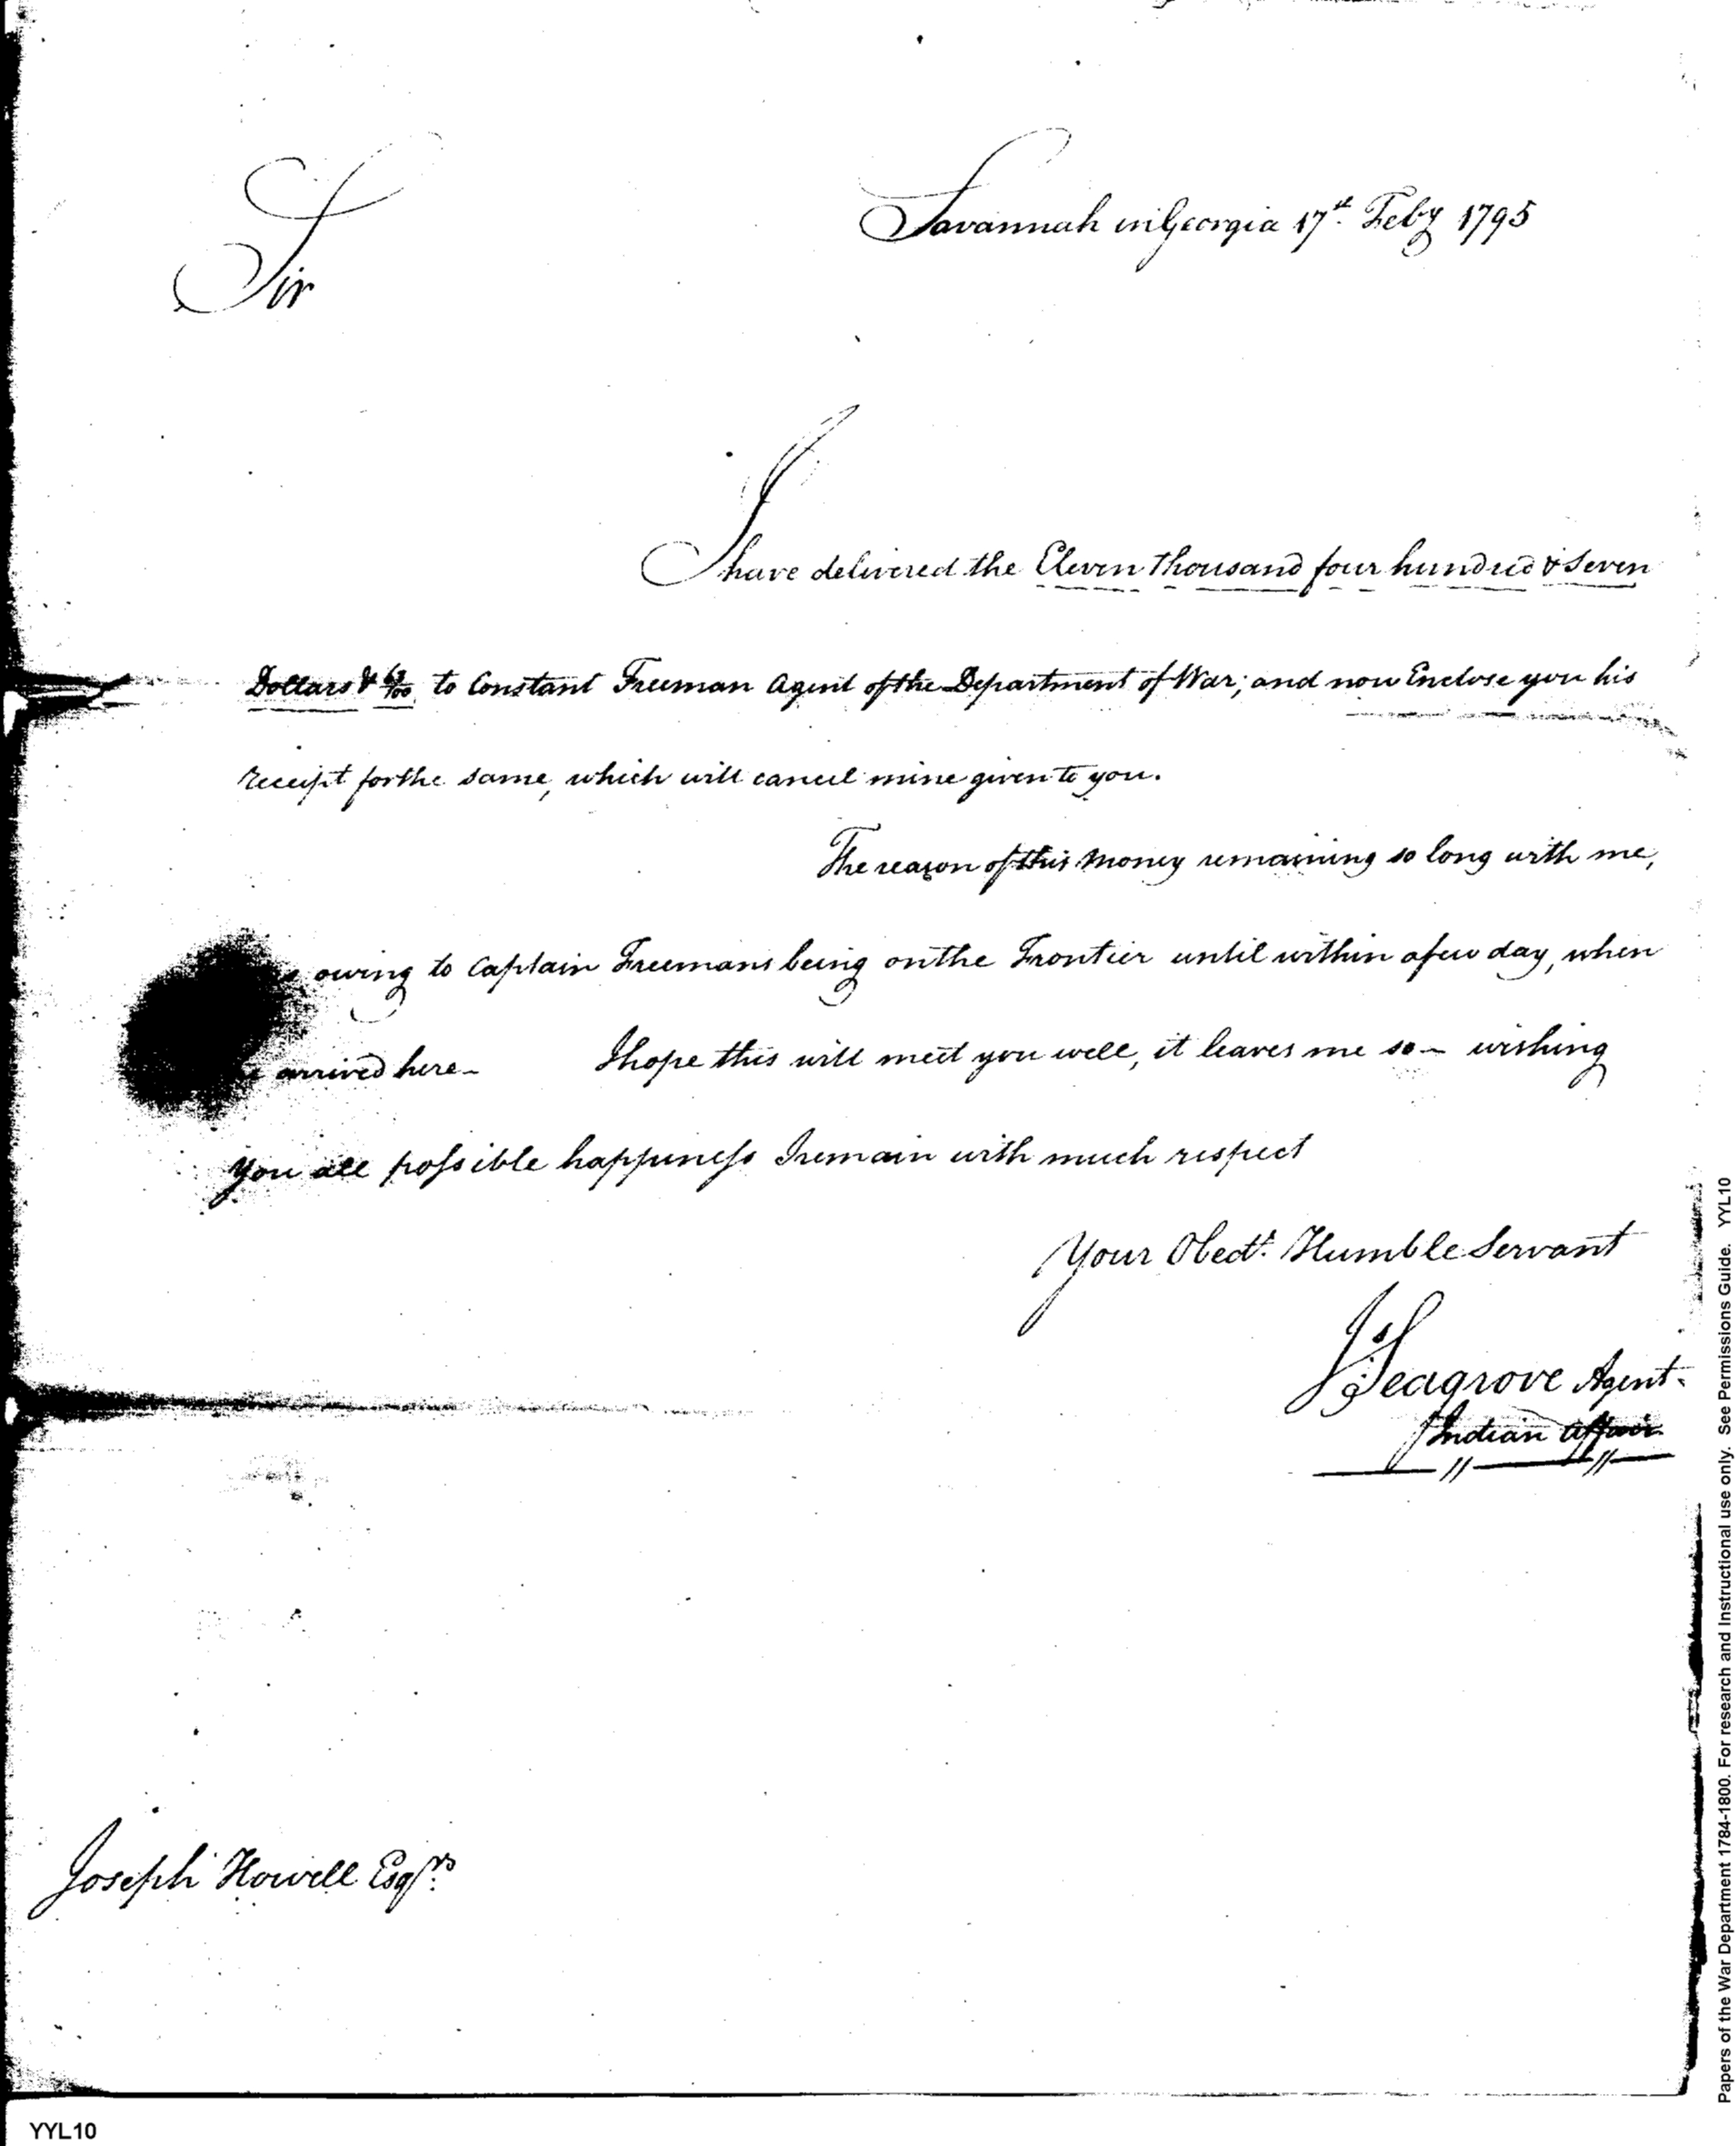 Savannah in Georgia 17th Feby 1795
Sir
I have delivered the Eleven Thousand four hundred & Seven
Dollars & /100 to Constant Freeman Agent of the Department of War; and now Enclose you his
receipt for the same, which will cancel mine given to you.
The reason of this Money remaining so long with me,
owing to Captain Freemans being on the Frontier until within a few day, when
arrived here - I hope this will meet you well, it leaves me so - wishing
you all possible happiness I remain with much respect
Your Obedt. Humble Servant
Js Seagrove Agent
Indian Affair
Joseph Howell Esqrs
YYL10
Papers of the War Department 1784-1800. For research and Instructional use only. See Permissions Guide. YYL10